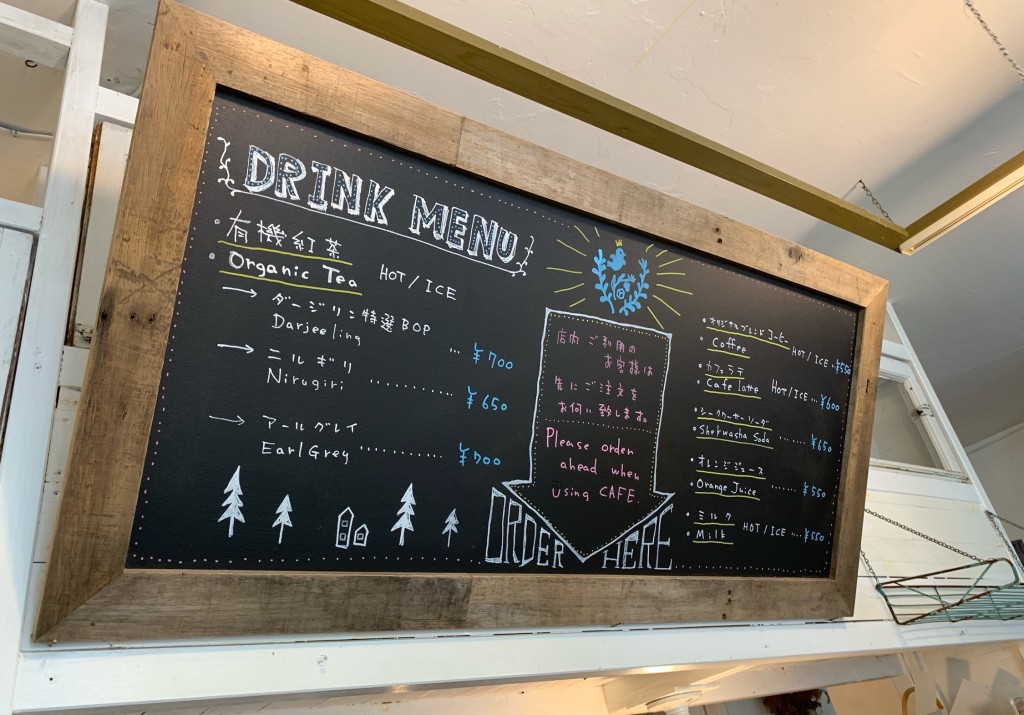 DRINK MENU
有機紅茶
Organic Tea HOT/ICE
ダージリン特選BOP
Darjeeling ... ¥700
ニルギリ
Nirugiri .......... ¥650
アールグレイ
Earl Grey .......... ¥700
店内ご利用の
お客様は
先にご注文を
お伺い致します。
Please order
ahead when
using CAFE.
ORDER HERE
オリジナルブレンドコーヒー
Coffee HOT/ICE... ¥550
カフェラテ
Cafe latte HOT/ICE... ¥600
シークワーサーソーダ
Shekwasha Soda ...... ¥650
オレンジジュース
Orange Juice ...... ¥550
ミルク
Milk HOT/ICE .... ¥550